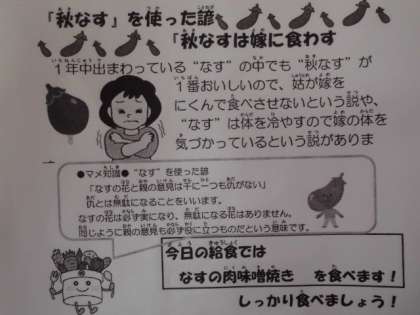 「秋なす」を使った諺
「秋なすは嫁に食わす
1年中出まわっている“なす”の中でも“秋なす”が
1番おいしいので、姑が嫁を
にくんで食べさせないという説や、
“なす”は体を冷やすので嫁の体を
気づかっているという説がありま
●マメ知識●“なす”を使った諺
「なすの花と親の意見は千に一つも仇がない」
仇とは無駄になることをいいます。
なすの花は必ず実になり、無駄になる花はありません。
同じように親の意見も必ず役に立つものだという意味です。
今日の給食では
なすの肉味噌焼き を食べます！
しっかり食べましょう！